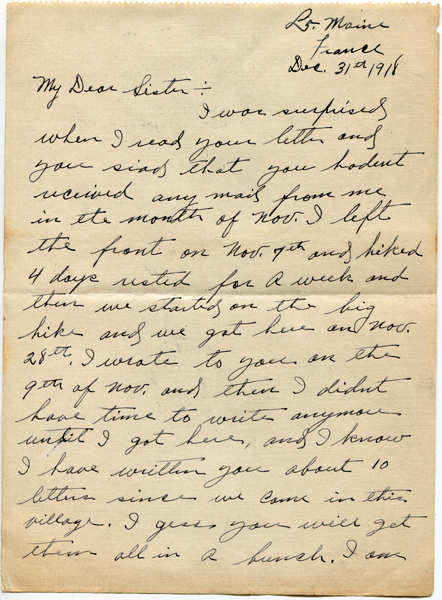 Ls. Maine
France
Dec. 31st 1918
My Dear Sister :-
I was surprised
when I read your letter and
you siad that you hadent
received any mail from me
in the month of Nov. I left
the front on Nov. 7th and hiked
4 days rested for a week and
then we started on the big
hike and we got here on Nov.
28th. I wrote to you on the
9th of Nov. and then I didnt
have time to write anymore
until I got here, and I know
I have written you about 10
letters since we came in this
village. I gess you will get
them all in a bunch. I am